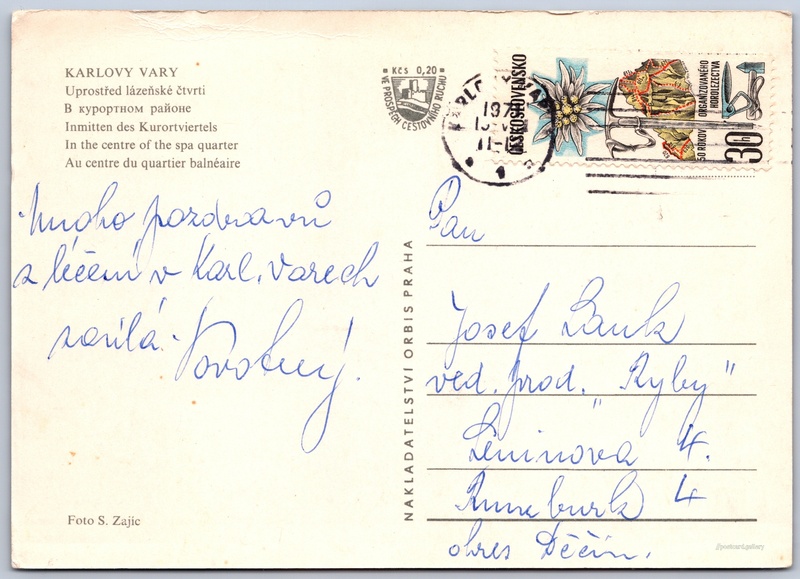 KARLOVY VARY
Uprostřed lázeňské čtvrti
В курортном районе
Inmitten des Kurortviertels
In the centre of the spa quarter
Au centre du quartier balnéaire
Kčs 0,20
VE PROSPĚCH CESTOVNÍHO RUCHU
ČESKOSLOVENSKO
50 ROKOV ORGANIZOVANÉHO HOROLEZECTVA
30h
Mnoho pozdravů
z léčení v Karl. Varech
zasílá
Novotný.
NAKLADATELSTVÍ ORBIS PRAHA
Pan
Josef Lank
ved. prod. "Ryby"
Leninova 4.
Rumburk 4
okres Děčín.
Foto S. Zajíc
postcard.gallery